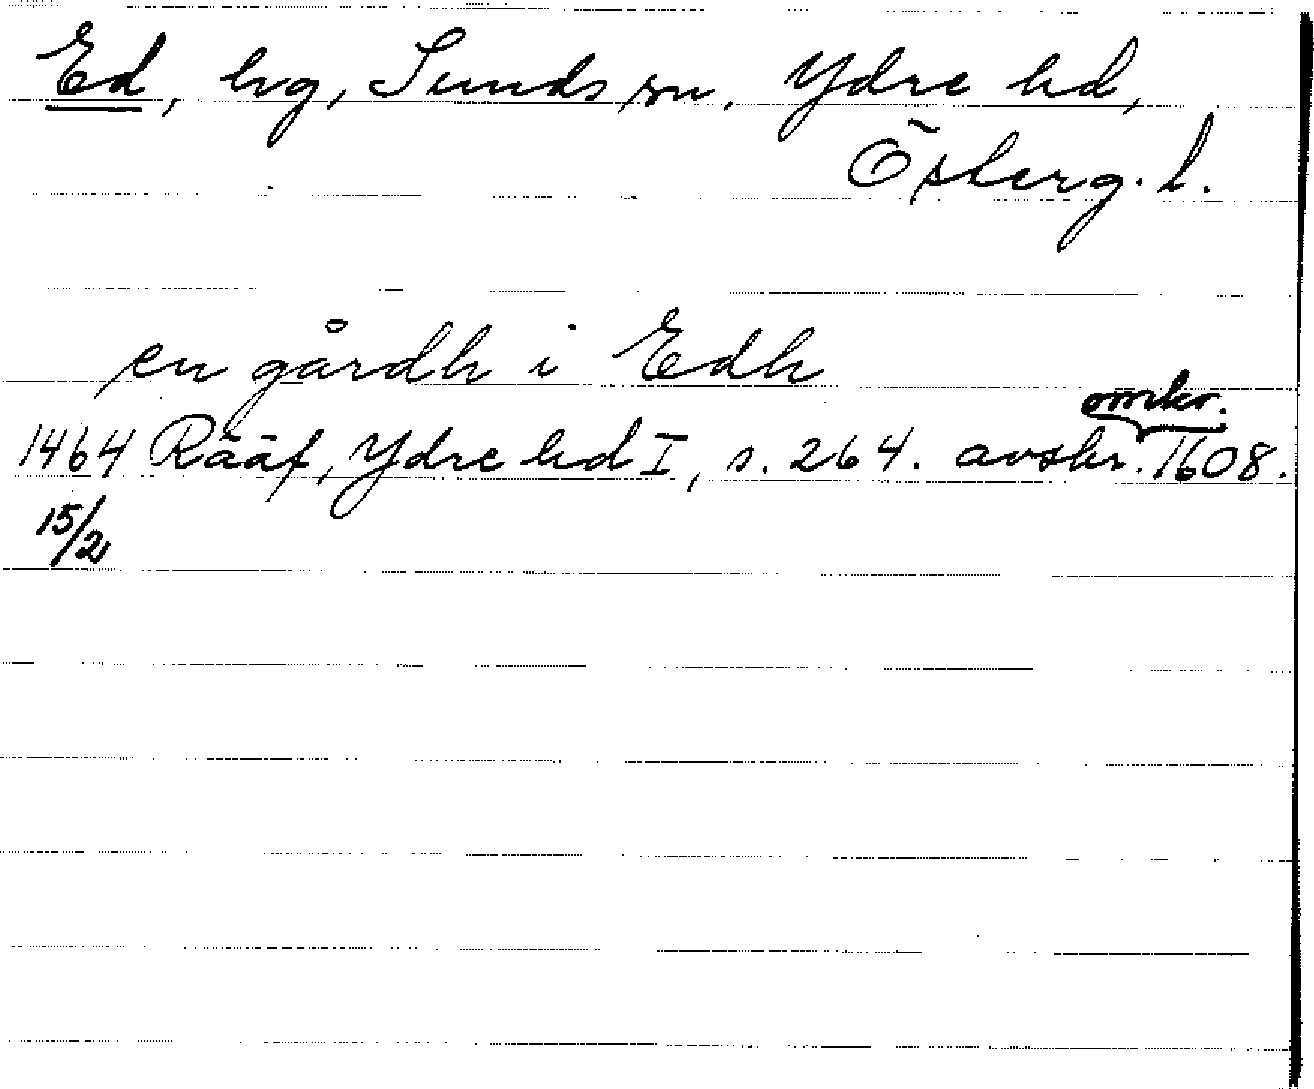 Ed, hg, Sunds sn. Ydre hd,
Österg. l.
en gårdh i Edh
omkr.
1464 Rääf, Ydre hd I, s. 264. avskr. 1608.
15/2